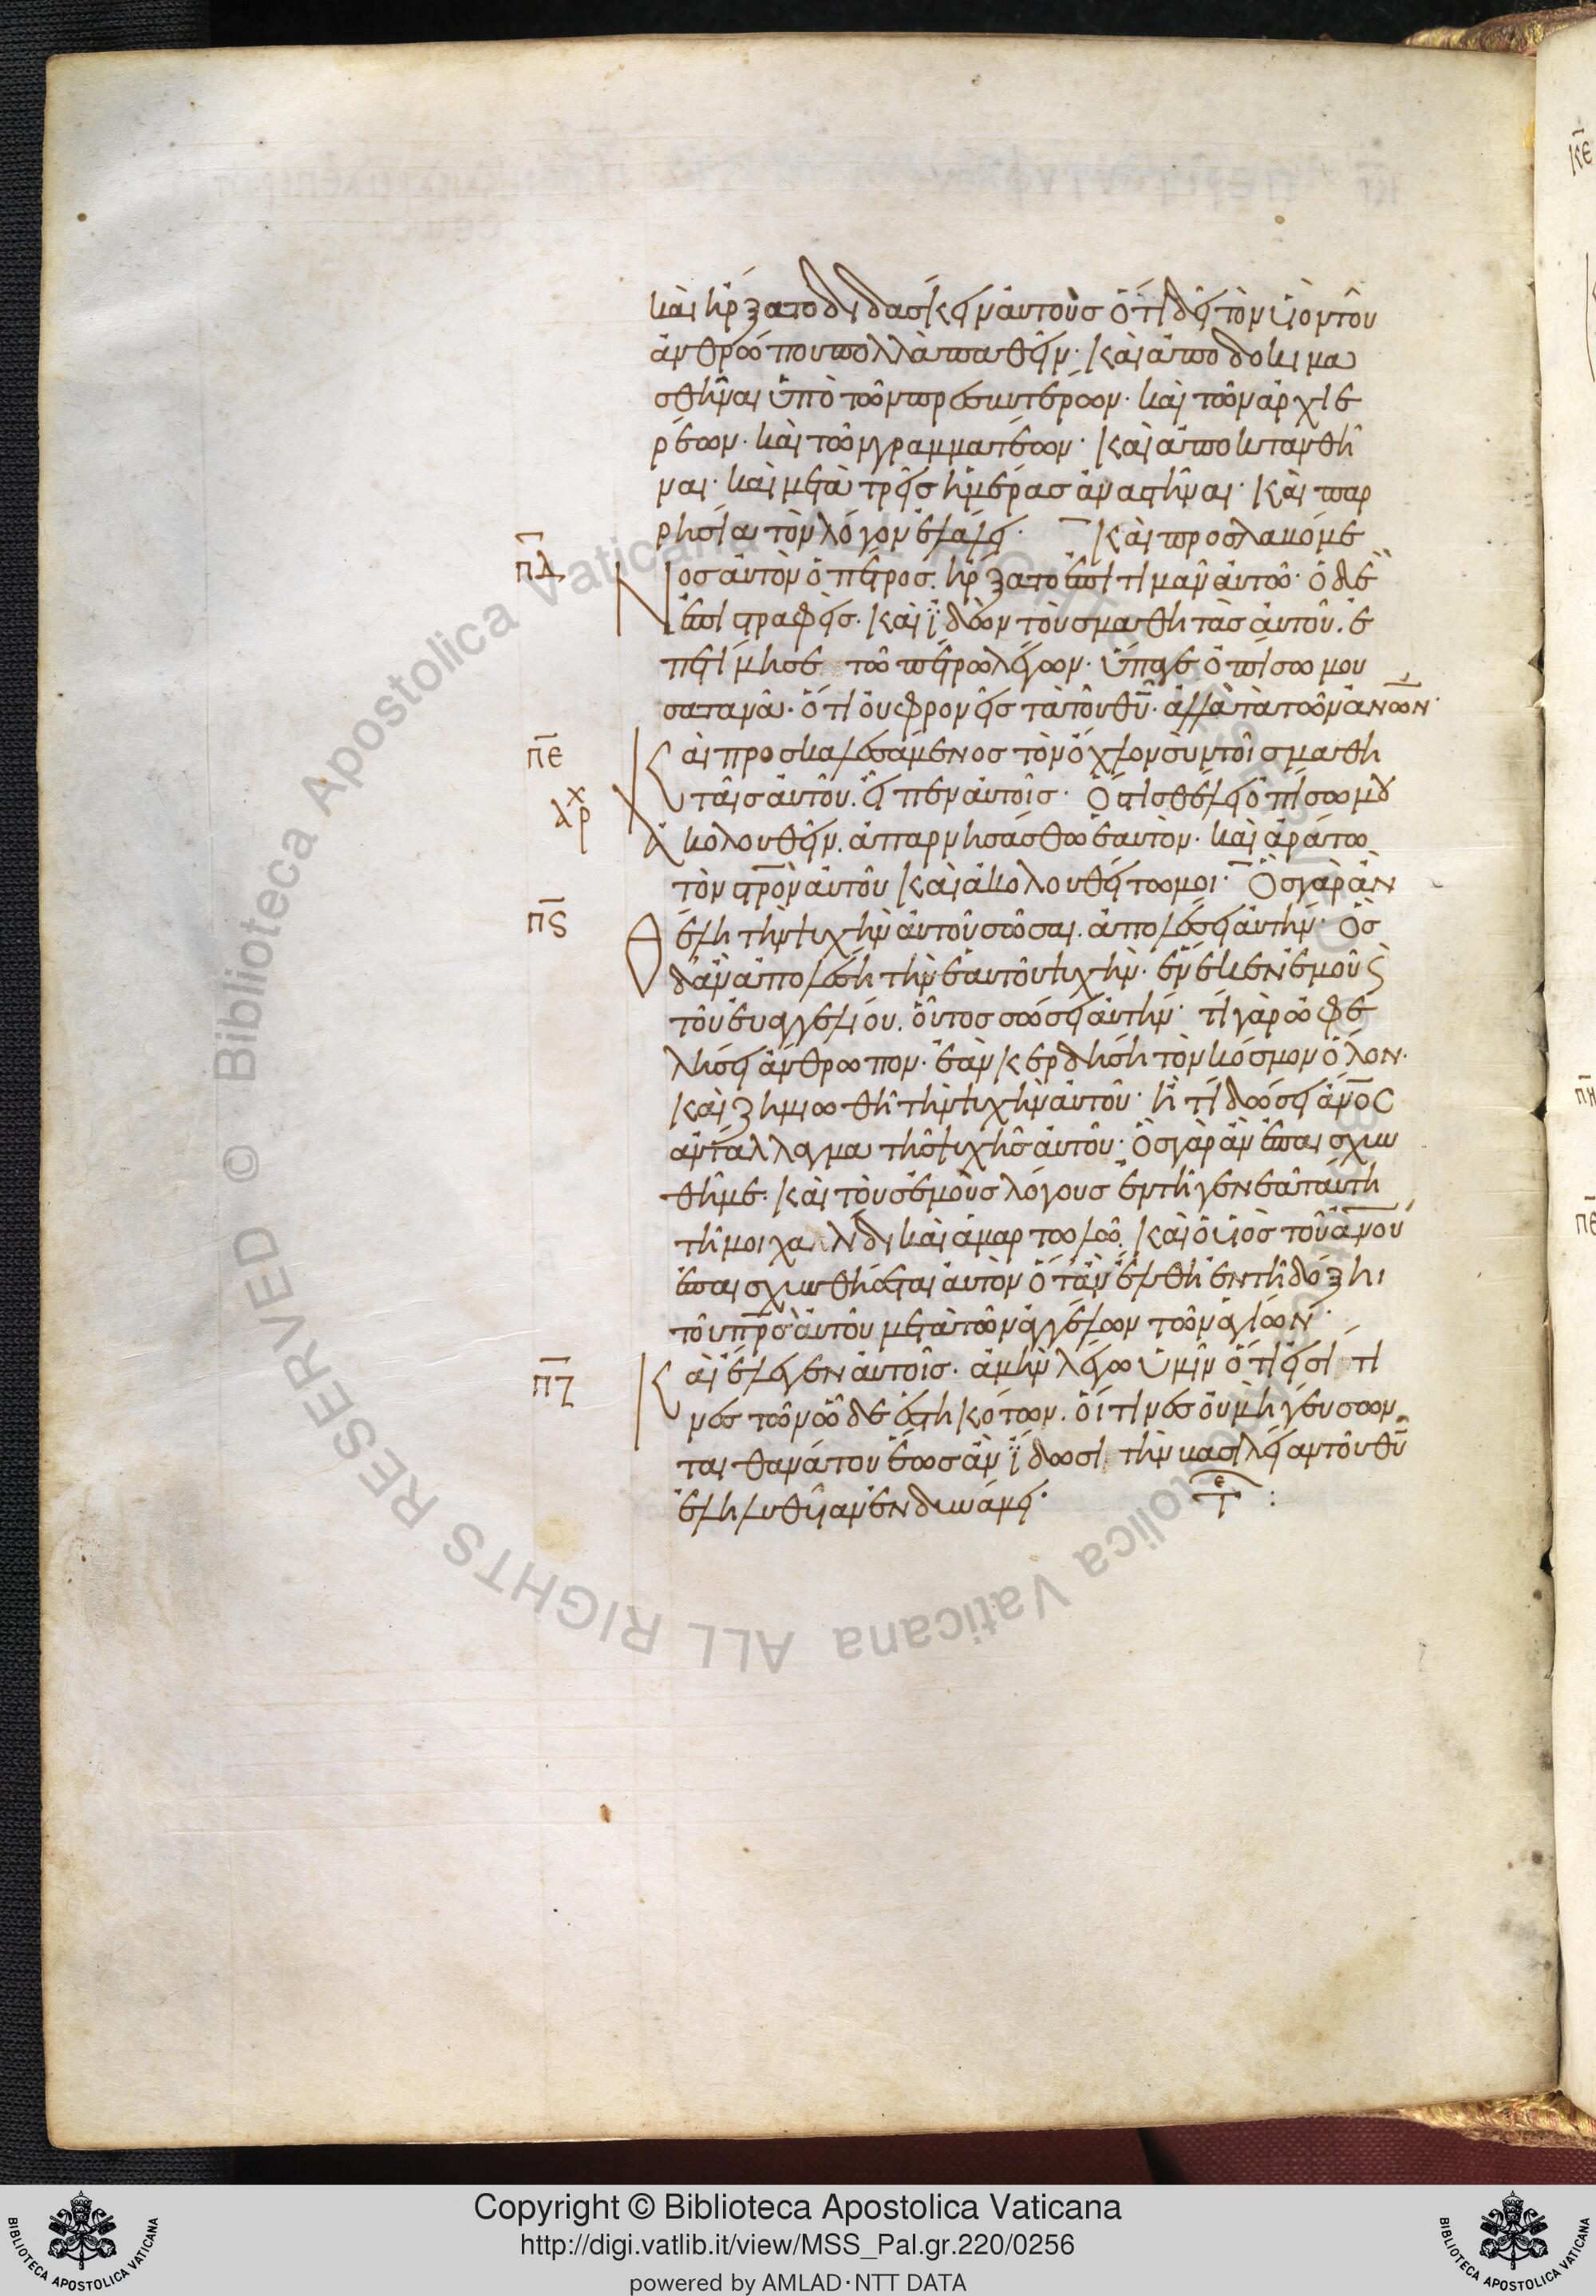 και ἠρξατο διδάσκειν αὐτοὺσ ὅτι δεῖ τὸν υἱὸν τοῦ
ἀνθρώπου πολλὰ παθεῖν· καὶ ἀποδοκιμα
σθῆναι ὑπὸ τῶν πρεσβυτέρων· καὶ τῶν ἀρχιε
ρέων· καὶ τῶν γραμματέων· καὶ ἀποκτανθῆ
ναι· καὶ μετὰ τρεῖσ ἡμέρασ ἀναστῆναι· καὶ παρ
ρησίαι τὸν λόγον ἐλάλει· καὶ προσλαβόμε
π̅δ̅ Νοσ αὐτὸν ὁ πέτροσ. ἤρξατο ἐπιτιμᾶν αὐτῶ· ὁ δὲ
ἐπιστραφεὶσ· καὶ ἰδὼν τοὺσ μαθητὰσ αὐτοῦ. ἐ
πετίμησε τῶ πέτρω λέγων· ὕπαγε ὀπίσω μου
σατανᾶ· ὅτι οὐ φρονεῖσ τὰ τοῦ θ̅υ̅· ἀλλὰ τὰ τῶν ἀν̅ω̅ν̅·
π̅ε̅ Καὶ προσκαλεσάμενοσ τὸν ὄχλον σὺν τοῖσ μαθη
αρχ ταῖσ αὐτοῦ. εἶπεν αὐτοῖσ· Ὅστισ θέλει ὀπίσω μȣ
ἀκολουθεῖν. ἀπαρνησάσθω ἑαυτὸν· καὶ ἀράτω
τὸν στ̅ρ̅ὸν αὐτοῦ καὶ ἀκολουθείτω μοι· Ὃσ γὰρ ἂν
π̅ϛ̅ Θέλη τὴν ψυχὴν αὐτοῦ σῶσαι. ἀπολέσει αὐτήν· Ὃσ
δ' ἂν ἀπολέση τὴν ἑαυτοῦ ψυχὴν· ἕνεκεν ἐμοῦ ϛ
τοῦ εὐαγγελίου. οὗτοσ σώσει αὐτήν· τί γὰρ ὠφε
λήσει ἄνθρωπον· ἐὰν κερδήση τὸν κόσμον ὅλον·
καὶ ζημιωθῆ τὴν ψυχὴν αὐτοῦ· ἢ τί δώσει ἄν̅ο̅σ
ἀντάλλαγμα τῆσ ψυχῆσ αὐτοῦ· Ὃσ γὰρ ἂν ἐπαισχυν
θῆ με· καὶ τοὺσ ἐμοὺσ λόγουσ ἐν τῆ γενεᾶ ταύτη
τῆ μοιχαλίδι καὶ ἁμαρτωλῶ. καὶ ὁ υἱὸσ τοῦ ἀν̅ο̅υ̅
ἐπαισχυνθήσεται αὐτὸν ὅταν ἔλθη ἐν τῆ δόξηι
τοῦ π̅ρ̅σ̅ αὐτοῦ μετὰ τῶν ἀγγέλων τῶν ἁγίων·
π̅ζ̅ Καὶ ἔλεγεν αὐτοῖσ. ἀμὴν λέγω ὑμῖν ὅτι εἰσί τι
νεσ τῶν ὧδε ἑστηκότων. οἵτινεσ οὐ μὴ γεύσων
ται θανάτου ἕωσ ἂν ἴδωσι τὴν βασιλείαν τοῦ θ̅υ̅
ἐληλυθυῖαν ἐν δυνάμει· τε :
Copyright © Biblioteca Apostolica Vaticana
http://digi.vatlib.it/view/MSS_Pal.gr.220/0256
powered by AMLAD·NTT DATA